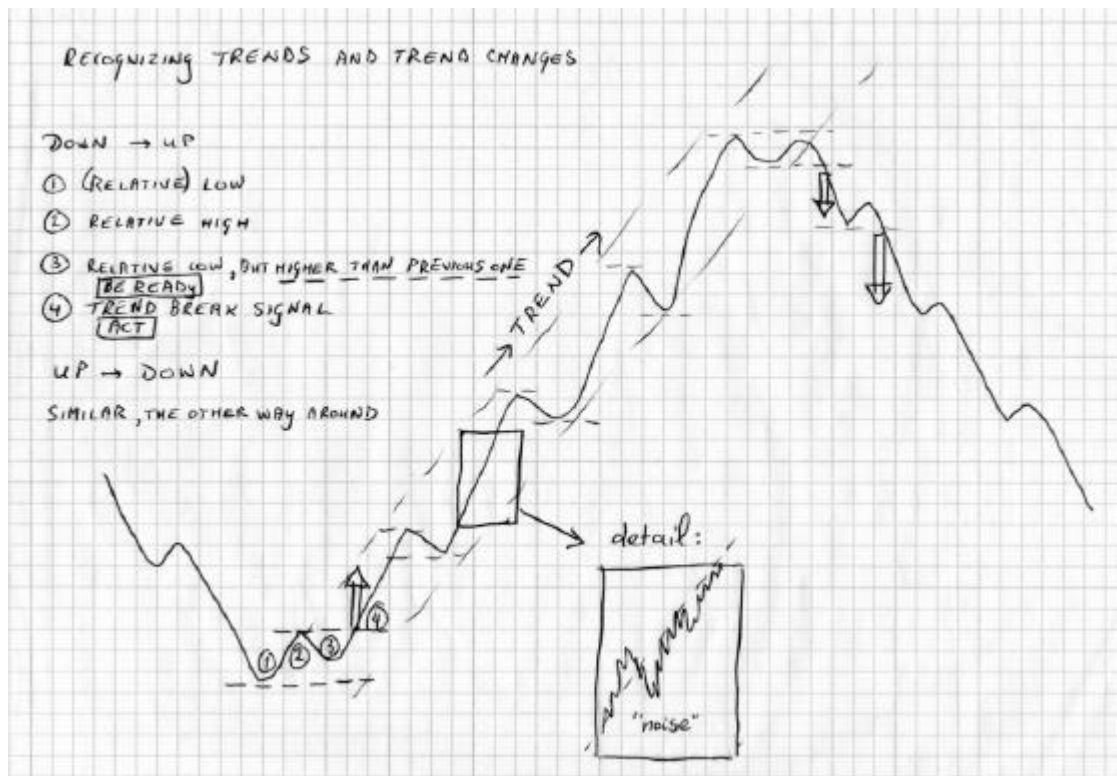 RECOGNIZING TRENDS AND TREND CHANGES
DOWN → UP
① (RELATIVE) LOW
② RELATIVE HIGH
③ RELATIVE LOW, BUT HIGHER THAN PREVIOUS ONE
BE READY
④ TREND BREAK SIGNAL
ACT
UP → DOWN
SIMILAR, THE OTHER WAY AROUND
→ TREND →
detail:
"noise"
① ② ③ ④